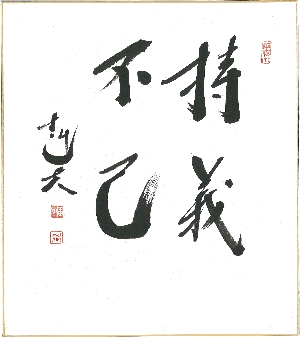 持義
不已